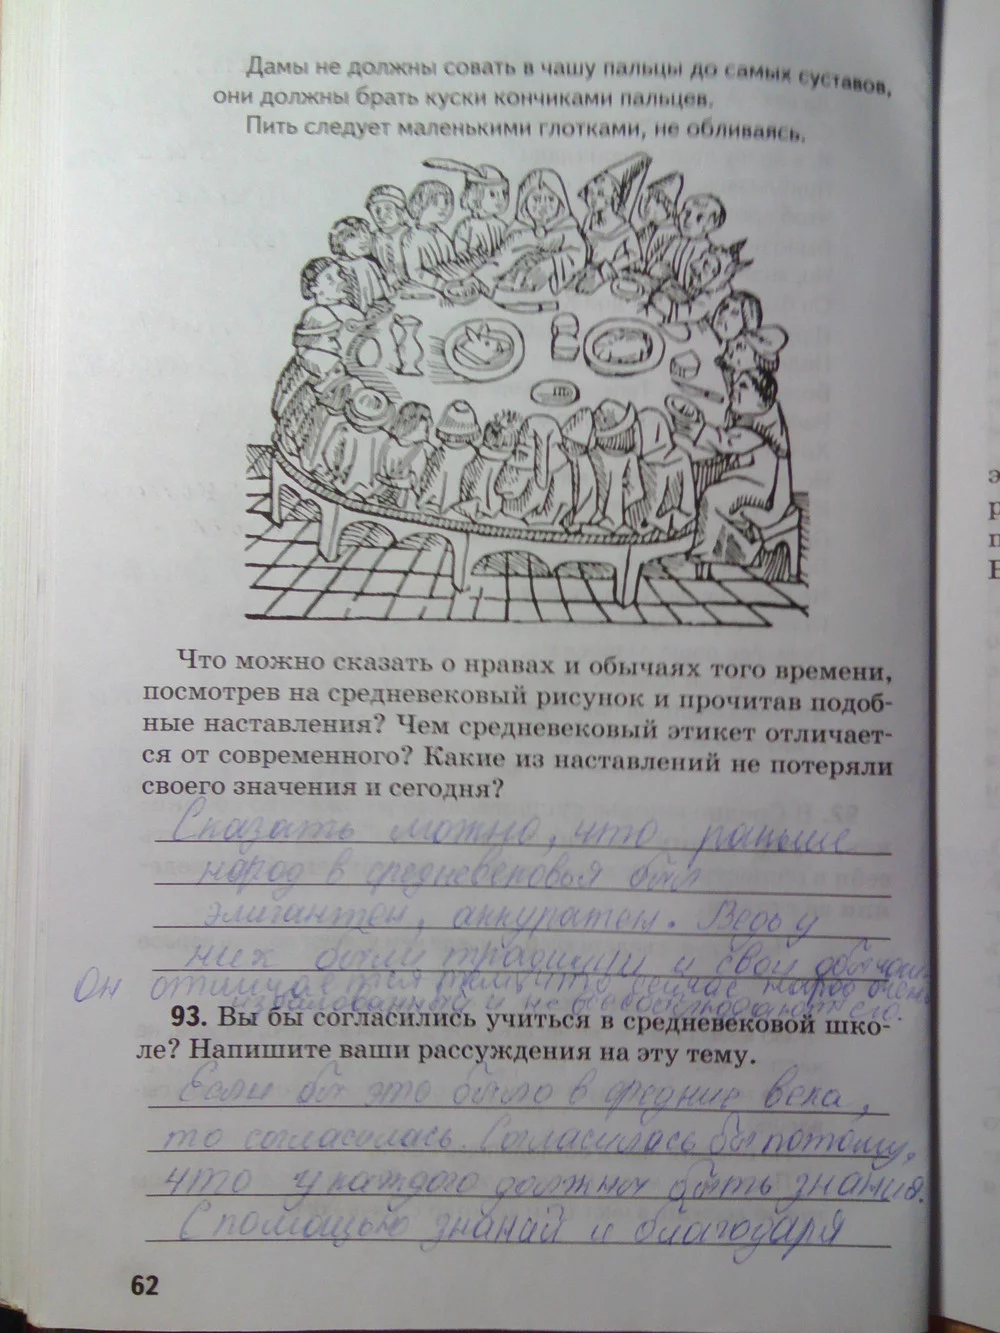 Дамы не должны совать в чашу пальцы до самых суставов,
они должны брать куски кончиками пальцев.
Пить следует маленькими глотками, не обливаясь.
Что можно сказать о нравах и обычаях того времени,
посмотрев на средневековый рисунок и прочитав подоб-
ные наставления? Чем средневековый этикет отличает-
ся от современного? Какие из наставлений не потеряли
своего значения и сегодня?
Сказать можно, что раньше
народ в средневековья был
элигантен, аккуратен. Ведь у
них были традиции и свои обычаи
Он отличается тем, что сейчас народ очень
избалованный и не все соблюдают его.
93. Вы бы согласились учиться в средневековой шко-
ле? Напишите ваши рассуждения на эту тему.
Если бы это было в средние века,
то согласилась. Согласилась бы потому,
что у каждого должны быть знания.
С помощью знаний и благодаря
62
э
р
п
В